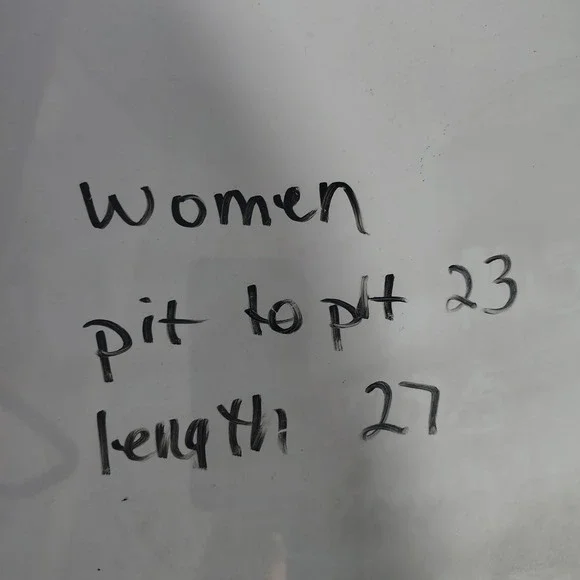 Women
pit to pit 23
length 27